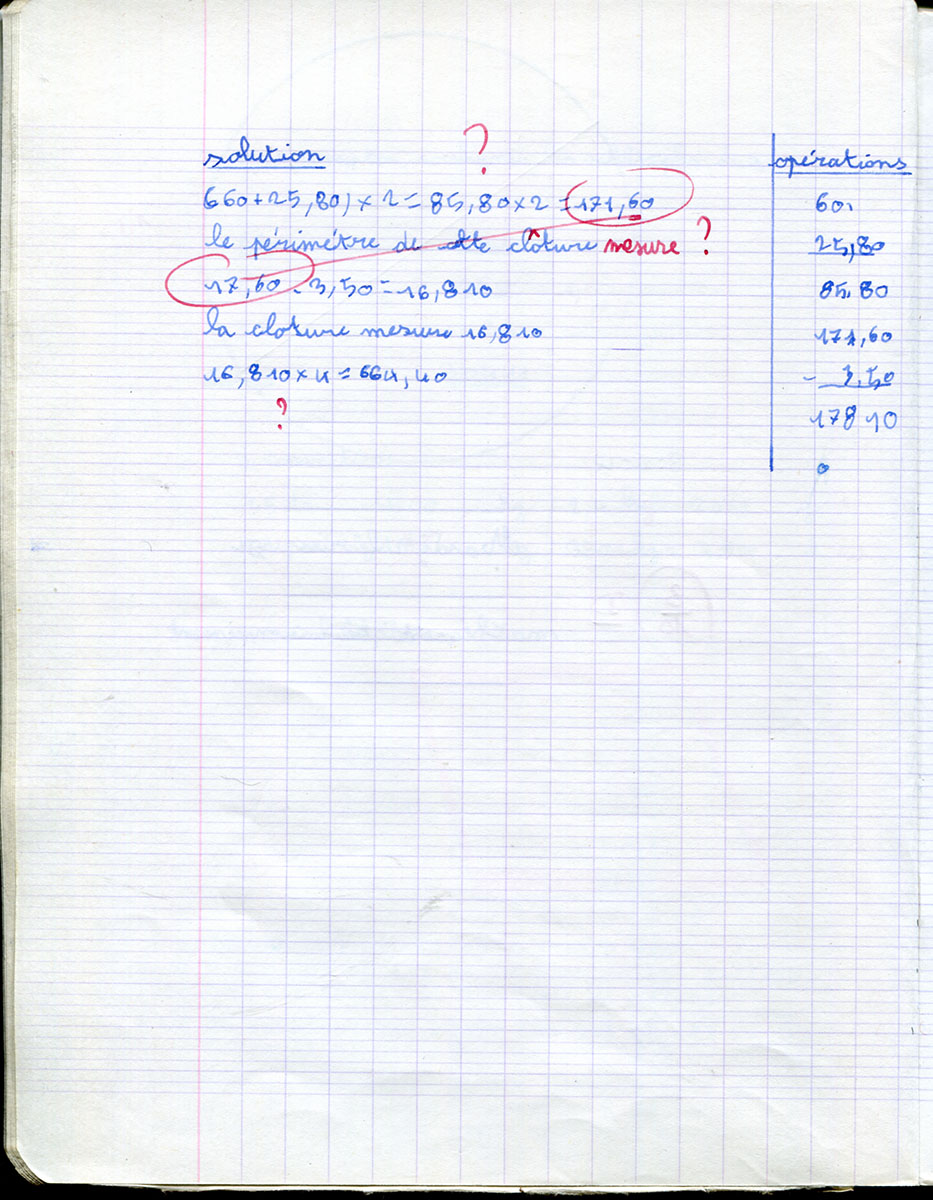 ?
solution
660+25,80)×2=85,80×2=171,60
le périmétre de cette clôture mesure ?
17,60-3,50=16,810
la cloture mesure 16,810
16,810×4=664,40
?
opérations
60,
25,80
85,80
171,60
- 3,50
178 10
0